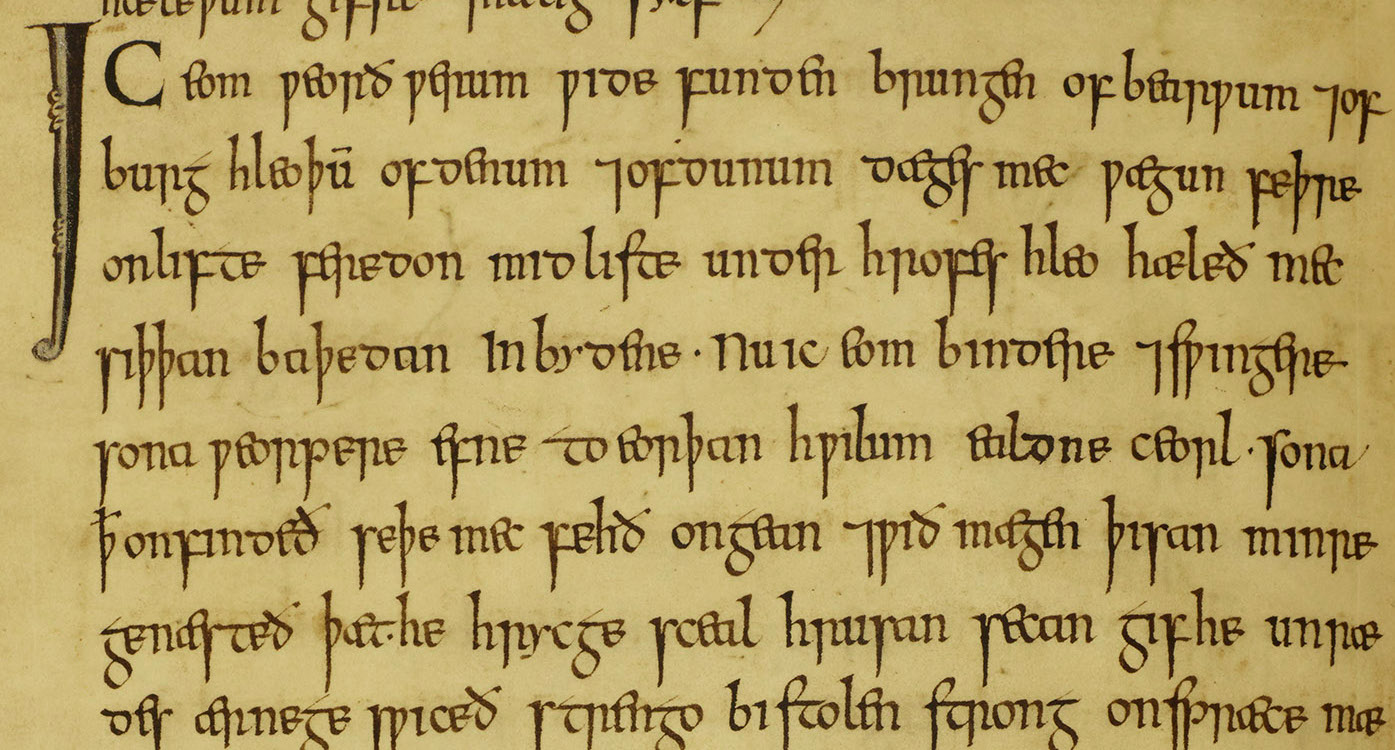 IC eom ƿeorð ƿerum ƿide funden brungen of bearƿum ⁊of
burg hleoþū of denum ⁊of dunum dæges mec ƿægun feþre
onlifte feredon mid liste under hrofes hleo hæleð mec
siþþan baþedan In bydene · Nu ic eom bindere ⁊sƿingere
sona ƿeorpere efne to eorþan hƿilum ealdne ceorl · sona
ꝥ onfindeð seþe mec fehð ongean ⁊ƿið mægen þisan minre
genæsteð þæt he hrycge sceal hrusan secan gif he unræ
des ær ne ge sƿiceð strengo bistolen strong on spræce mæ